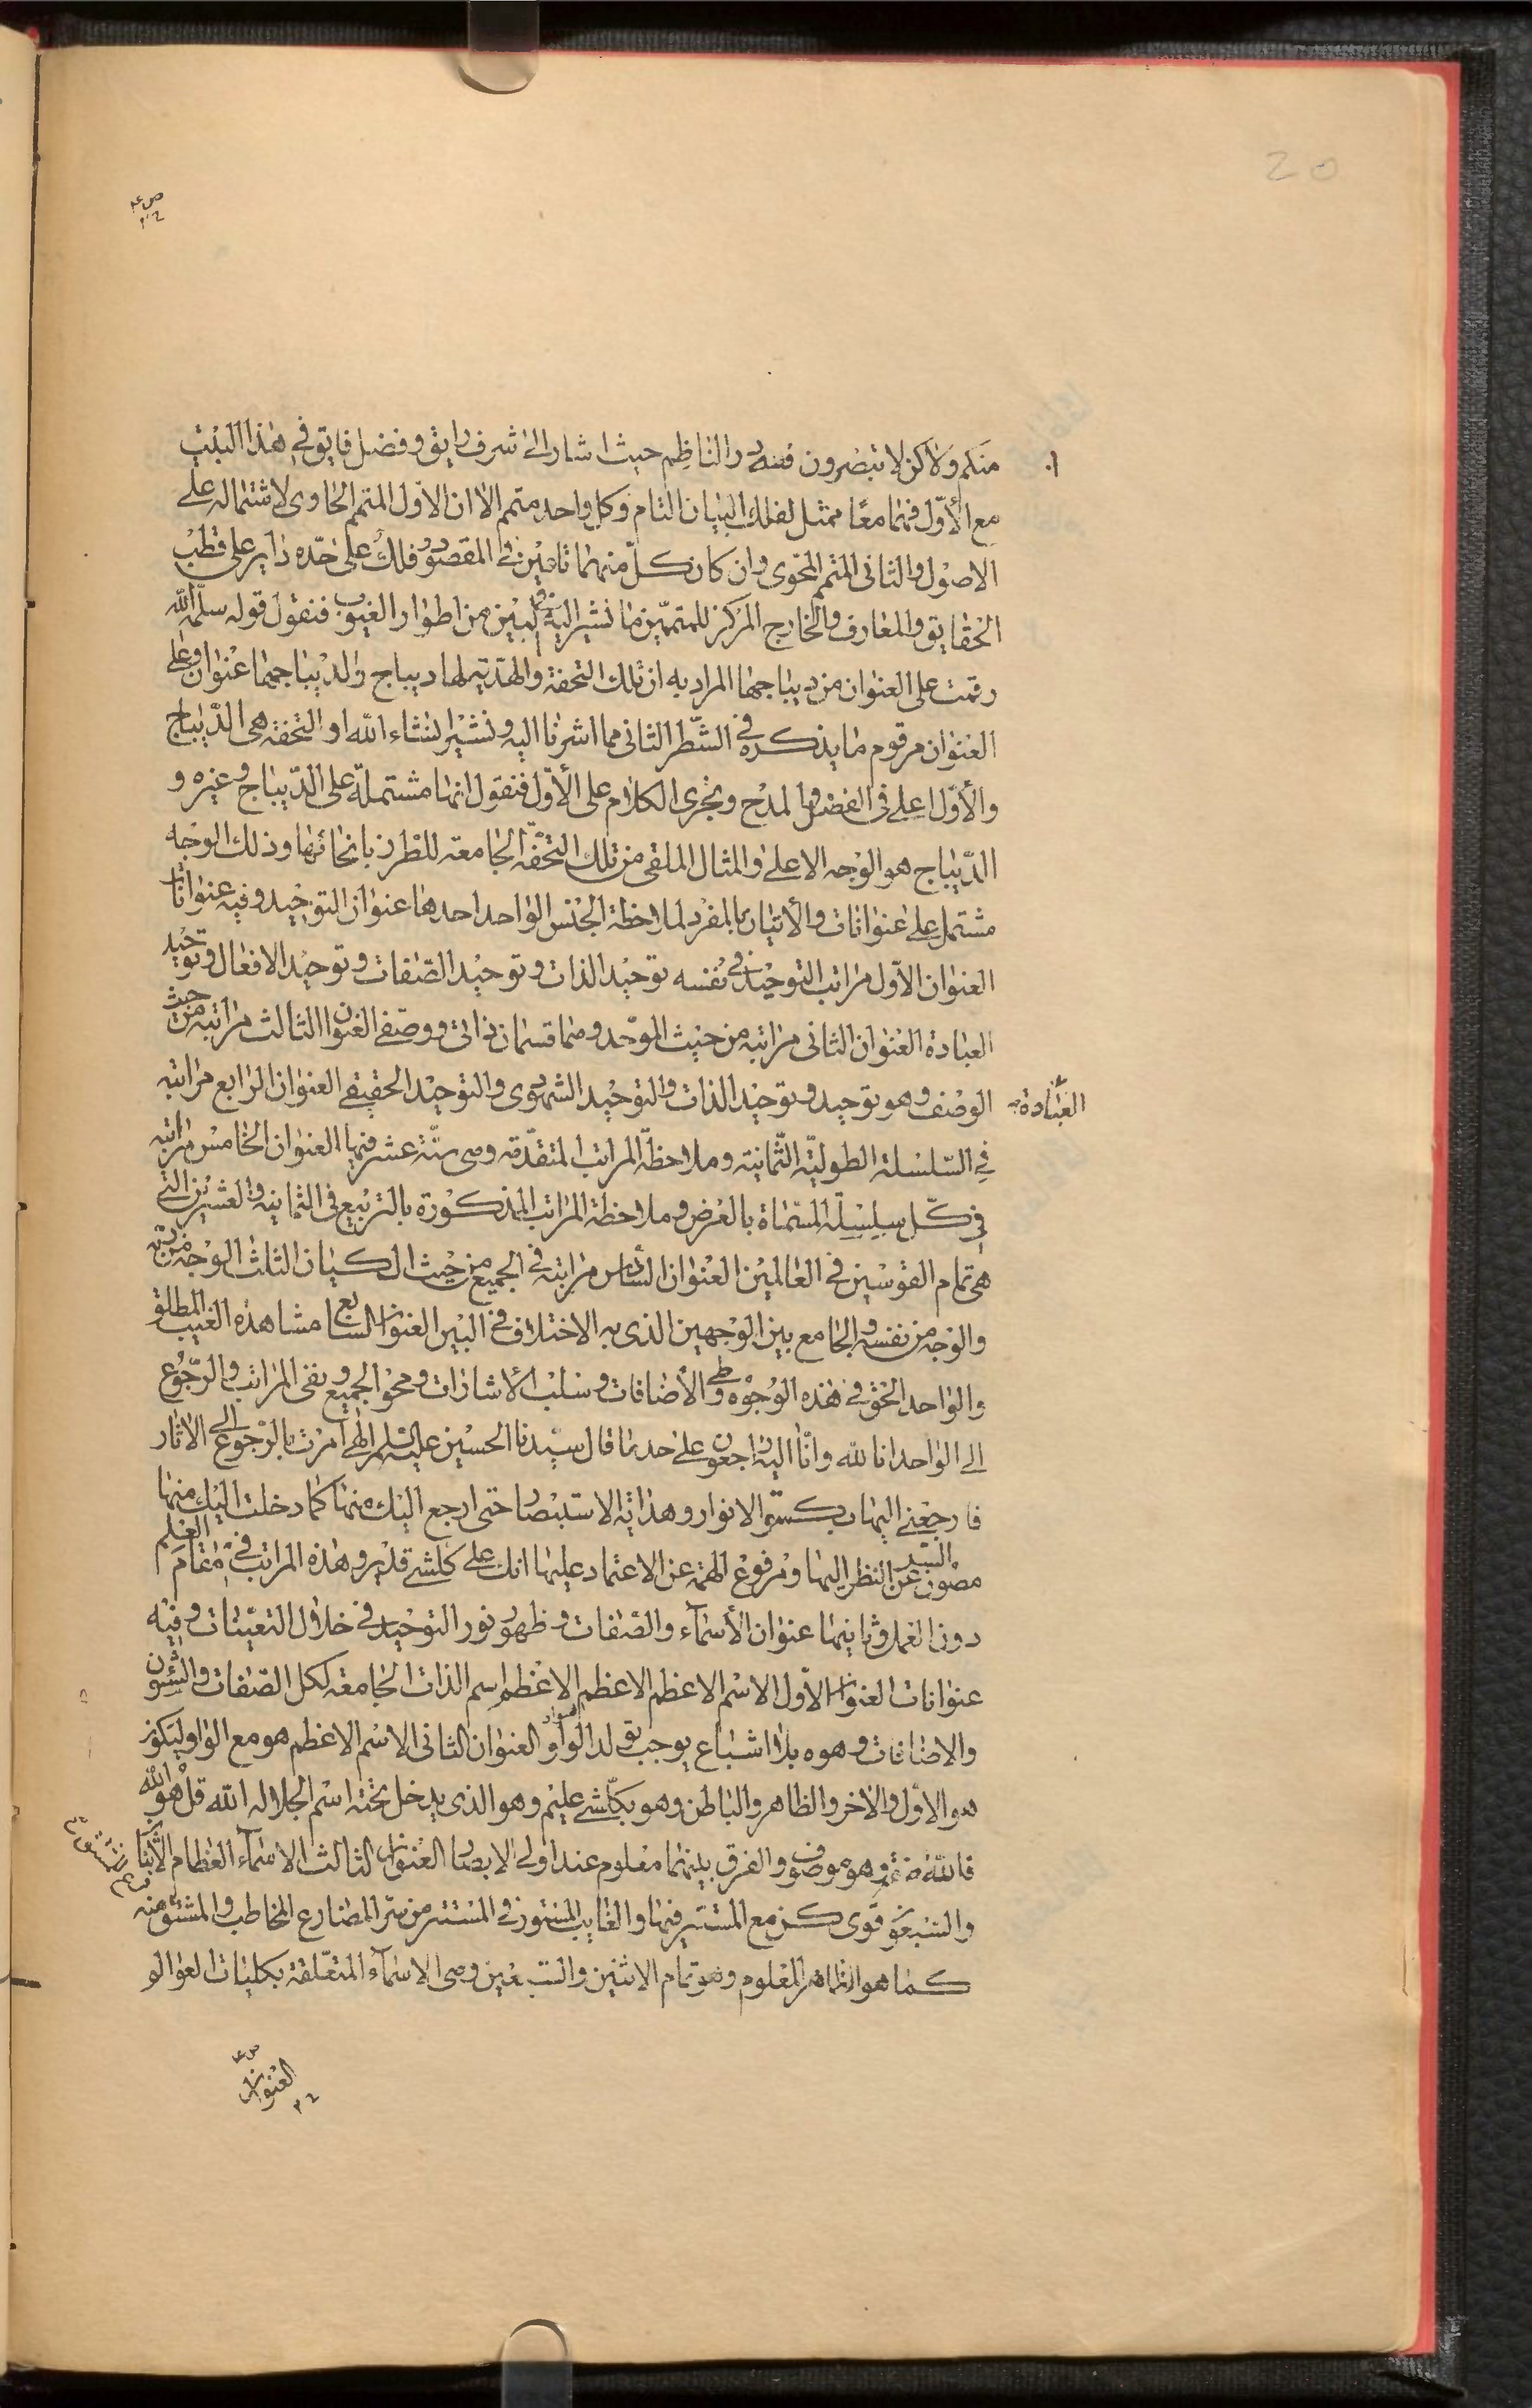 20
منكم ولاكن لا تبصرون فلله در الناظم حيث اشار الى شرف رايق وفضل فايق في هذا البيت
مع الأول فهما معًا ممثل لفلك البيان التام وكل واحد متمم الا ان الاول المتمم الحاوى لاشتماله على
الاصول والثانى المتمم المحوى وان كان كل منهما تامين في المقصود فلك على حده داير على قطب
الحقايق والمعارف والخارج المركز للمتممين ما نشير اليه في البين من اطوار الغيوب فنقول قوله سلمه الله
رقمت على العنوان من ديباجها المراد به ان تلك التحفة والهدية لها ديباج والديباجها عنوان وعلى
العنوان مرقوم ما يذكره في الشطر الثانى مما اشرنا اليه ونشير انشاء الله او التحفة هى الديباج
والأول اعلى في الفضل والمدح ونجرى الكلام على الأول فنقول انها مشتملة على الديباج وغيره و
الديباج هو الوجه الاعلى والمثال الملقى من تلك التحفة الجامعة للطرز بانحائها وذلك الوجه
مشتمل على عنوانات والأتيان بالمفرد لملاحظة الجنس الواحد احدها عنوان التوحيد وفيه عنوانات
العنوان الاول مراتب التوحيد في نفسه توحيد الذات وتوحيد الصفات وتوحيد الافعال وتوحيد
العبادة العنوان الثانى مراتبه من حيث الموحد وهما قسمان ذاتى ووصفى العنوان الثالث مراتبه من حيث
الوصف وهو توحيد وتوحيد الذات والتوحيد الشهودى والتوحيد الحقيقى العنوان الرابع مراتبه
العبادة
في السلسلة الطولية الثمانية وملاحظة المراتب المتقدمة وهى ستة عشر فيها العنوان الخامس مراتبه
في كل سلسلة المسماة بالعرض وملاحظة المراتب المذكورة بالتربيع في الثمانية والعشرين التى
هى تمام القوسين في العالمين العنوان السادس مراتبه في الجميع من حيث الكيان الثلث الوجه من ربه
والوجه من نفسه والجامع بين الوجهين الذى به الاختلاف في البين العنوان السابع مشاهدة الغيب المطلق
والواحد الحق في هذه الوجوه وطى الأضافات وسلب الأشارات ومحو الجميع ونفى المراتب والرجوع
الى الواحد انا لله وانا اليه راجعون على حد ما قال سيدنا الحسين عليه السلم الهى امرت بالرجوع الى الاثار
فارجعنى اليها بكسوة الانوار وهداية الاستبصار حتى ارجع اليك منها كما دخلت اليك منها
مصون السر عن النظر اليها ومرفوع الهمة عن الاعتماد عليها انك على كلشى قدير وهذه المراتب في مقام العلم
دون العمل وثانيها عنوان الأسماء والصفات وظهور نور التوحيد في خلال التعينات وفيه
عنوانات العنوان الاول الاسم الاعظم الاعظم الاعظم اسم الذات الجامعة لكل الصفات والشئون
والاضافات وهو ه بلا اشباع يوجب تولد الواو العنوان الثانى الاسم الاعظم هو مع الواو ليكون
هو الاول والاخر والظاهر والباطن وهو بكلشى عليم وهو الذى يدخل تحته اسم الجلاله الله قل هو الله
فالله صفة وهو موصوف والفرق بينهما معلوم عند اولى الابصار العنوان الثالث الاسماء العظام
والشبعة قوى كن مع المستتر فيها والغايب المستور في المستتر من سر المضارع المخاطب والمشتق منه
كما هو الظاهر المعلوم وهو تمام الاثنين والتسعين وهى الاسماء المتعلقة بكليات العوالم
العنوان